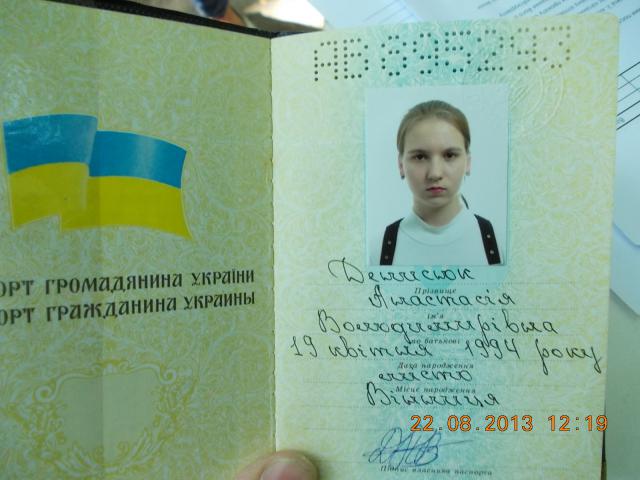 ОРТ ГРОМАДЯНИНА УКРАЇНИ
ОРТ ГРАЖДАНИНА УКРАИНЫ
АВ
Денисюк
Прізвище
Анастасія
ім'я
Володимирівна
по батькові
19 квітня 1994 року
Дата народження
місто
Місце народження
Вінниця
22.08.2013 12:19
Підпис власника паспорта